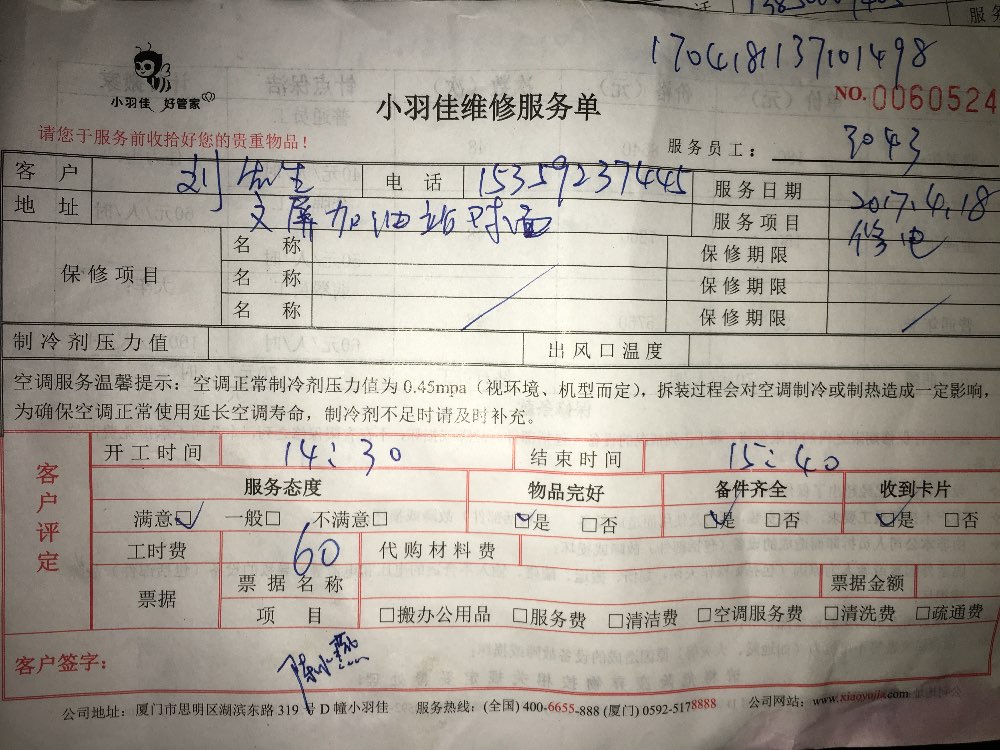 1704181137101498
小羽佳 好管家
小羽佳维修服务单
NO.0060524
请您于服务前收拾好您的贵重物品！
服务员工： 3043
客户 刘先生 电话 15359237445 服务日期 2017.4.18
地址 文屏加油站对面 服务项目 修电
保修项目 名称 保修期限
名称 保修期限
名称 保修期限
制冷剂压力值 出风口温度
空调服务温馨提示：空调正常制冷剂压力值为 0.45mpa（视环境、机型而定），拆装过程会对空调制冷或制热造成一定影响，
为确保空调正常使用延长空调寿命，制冷剂不足时请及时补充。
客户评定
开工时间 14:30 结束时间 15:40
服务态度 物品完好 备件齐全 收到卡片
满意☑ 一般□ 不满意□ ☑是 □否 ☑是 □否 ☑是 □否
工时费 60 代购材料费
票据 票据名称 票据金额
项目 □搬办公用品 □服务费 □清洁费 □空调服务费 □清洗费 □疏通费
客户签字：
公司地址：厦门市思明区湖滨东路 319 号 D 幢小羽佳 服务热线：(全国) 400-6655-888 (厦门) 0592-5178888 公司网站：www.xiaoyujia.com